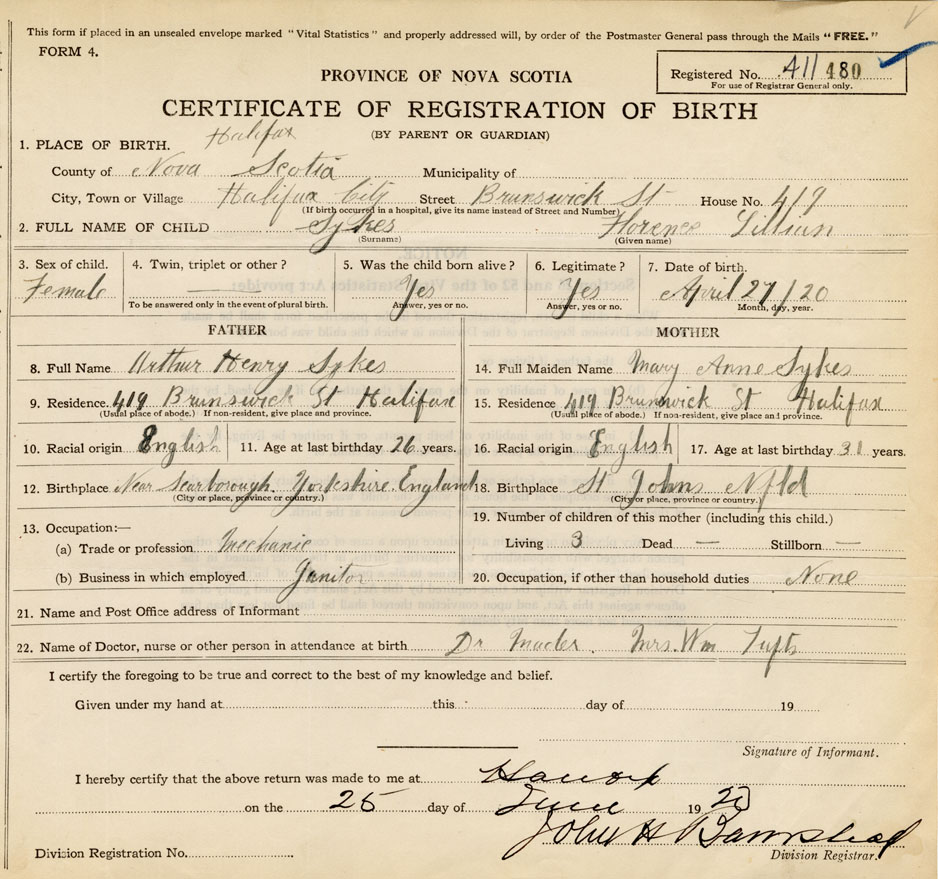 This form if placed in an unsealed envelope marked "Vital Statistics" and properly addressed will, by order of the Postmaster General pass through the Mails "FREE."
FORM 4.
Registered No. 411 480
For use of Registrar General only.
PROVINCE OF NOVA SCOTIA
CERTIFICATE OF REGISTRATION OF BIRTH
(BY PARENT OR GUARDIAN)
1. PLACE OF BIRTH. Halifax
County of Nova Scotia Municipality of
City, Town or Village Halifax City Street Brunswick St House No. 419
(If birth occurred in a hospital, give its name instead of Street and Number)
2. FULL NAME OF CHILD Sykes Florence Lillian
(Surname) (Given name)
3. Sex of child. 4. Twin, triplet or other? 5. Was the child born alive? 6. Legitimate? 7. Date of birth.
Female — Yes Yes April 27/20
To be answered only in the event of plural birth. Answer, yes or no. Answer, yes or no. Month, day, year.
FATHER MOTHER
8. Full Name Arthur Henry Sykes 14. Full Maiden Name Mary Anne Sykes
9. Residence. 419 Brunswick St Halifax 15. Residence 419 Brunswick St Halifax
(Usual place of abode.) If non-resident, give place and province. (Usual place of abode.) If non-resident, give place and province.
10. Racial origin English 11. Age at last birthday 26 years. 16. Racial origin English 17. Age at last birthday 31 years.
12. Birthplace Near Scarborough. Yorkshire. England 18. Birthplace St Johns Nfld
(City or place, province or country.) (City or place, province or country.)
13. Occupation:— 19. Number of children of this mother (including this child.)
(a) Trade or profession Mechanic Living 3 Dead — Stillborn —
(b) Business in which employed Janitor 20. Occupation, if other than household duties None
21. Name and Post Office address of Informant
22. Name of Doctor, nurse or other person in attendance at birth Dr Mrs. Wm Tufts
I certify the foregoing to be true and correct to the best of my knowledge and belief.
Given under my hand at this day of 19
Signature of Informant.
I hereby certify that the above return was made to me at
on the 25 day of June 1920
John H Barnstead
Division Registrar No. Division Registrar.